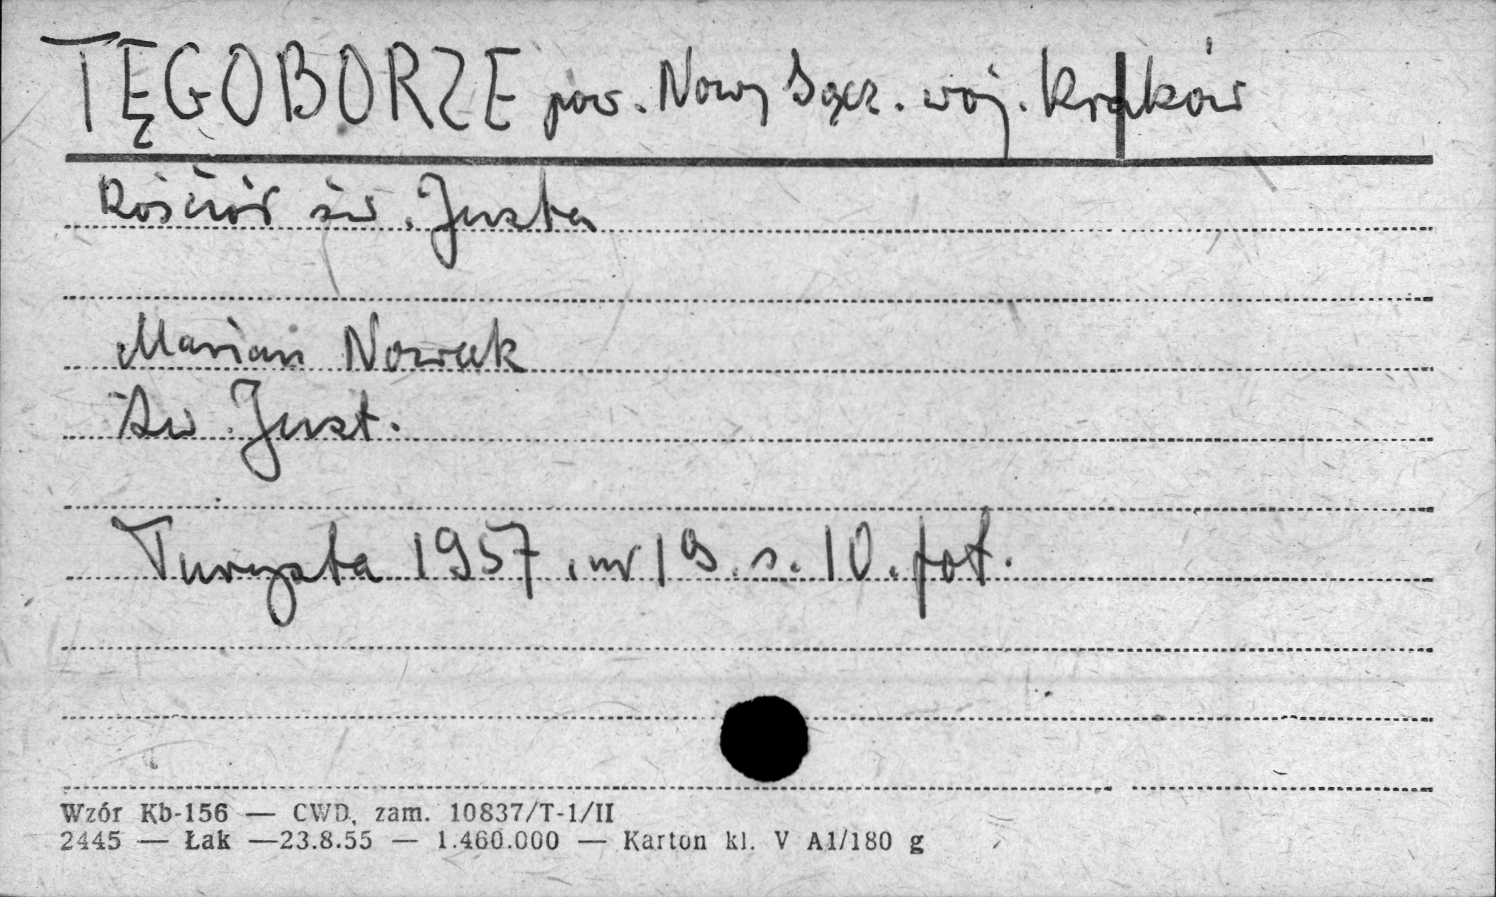 TĘGOBORZE pow. Nowy Sącz. woj. Kraków
Kościół św. Justa
Marian Nowak
Św Just.
Turysta 1957. nr 19. s. 10. fot.
Wzór Kb-156 — CWD, zam. 10837/T-1/II
2445 — Łak —23.8.55 — 1.460.000 — Karton kl. V A1/180 g